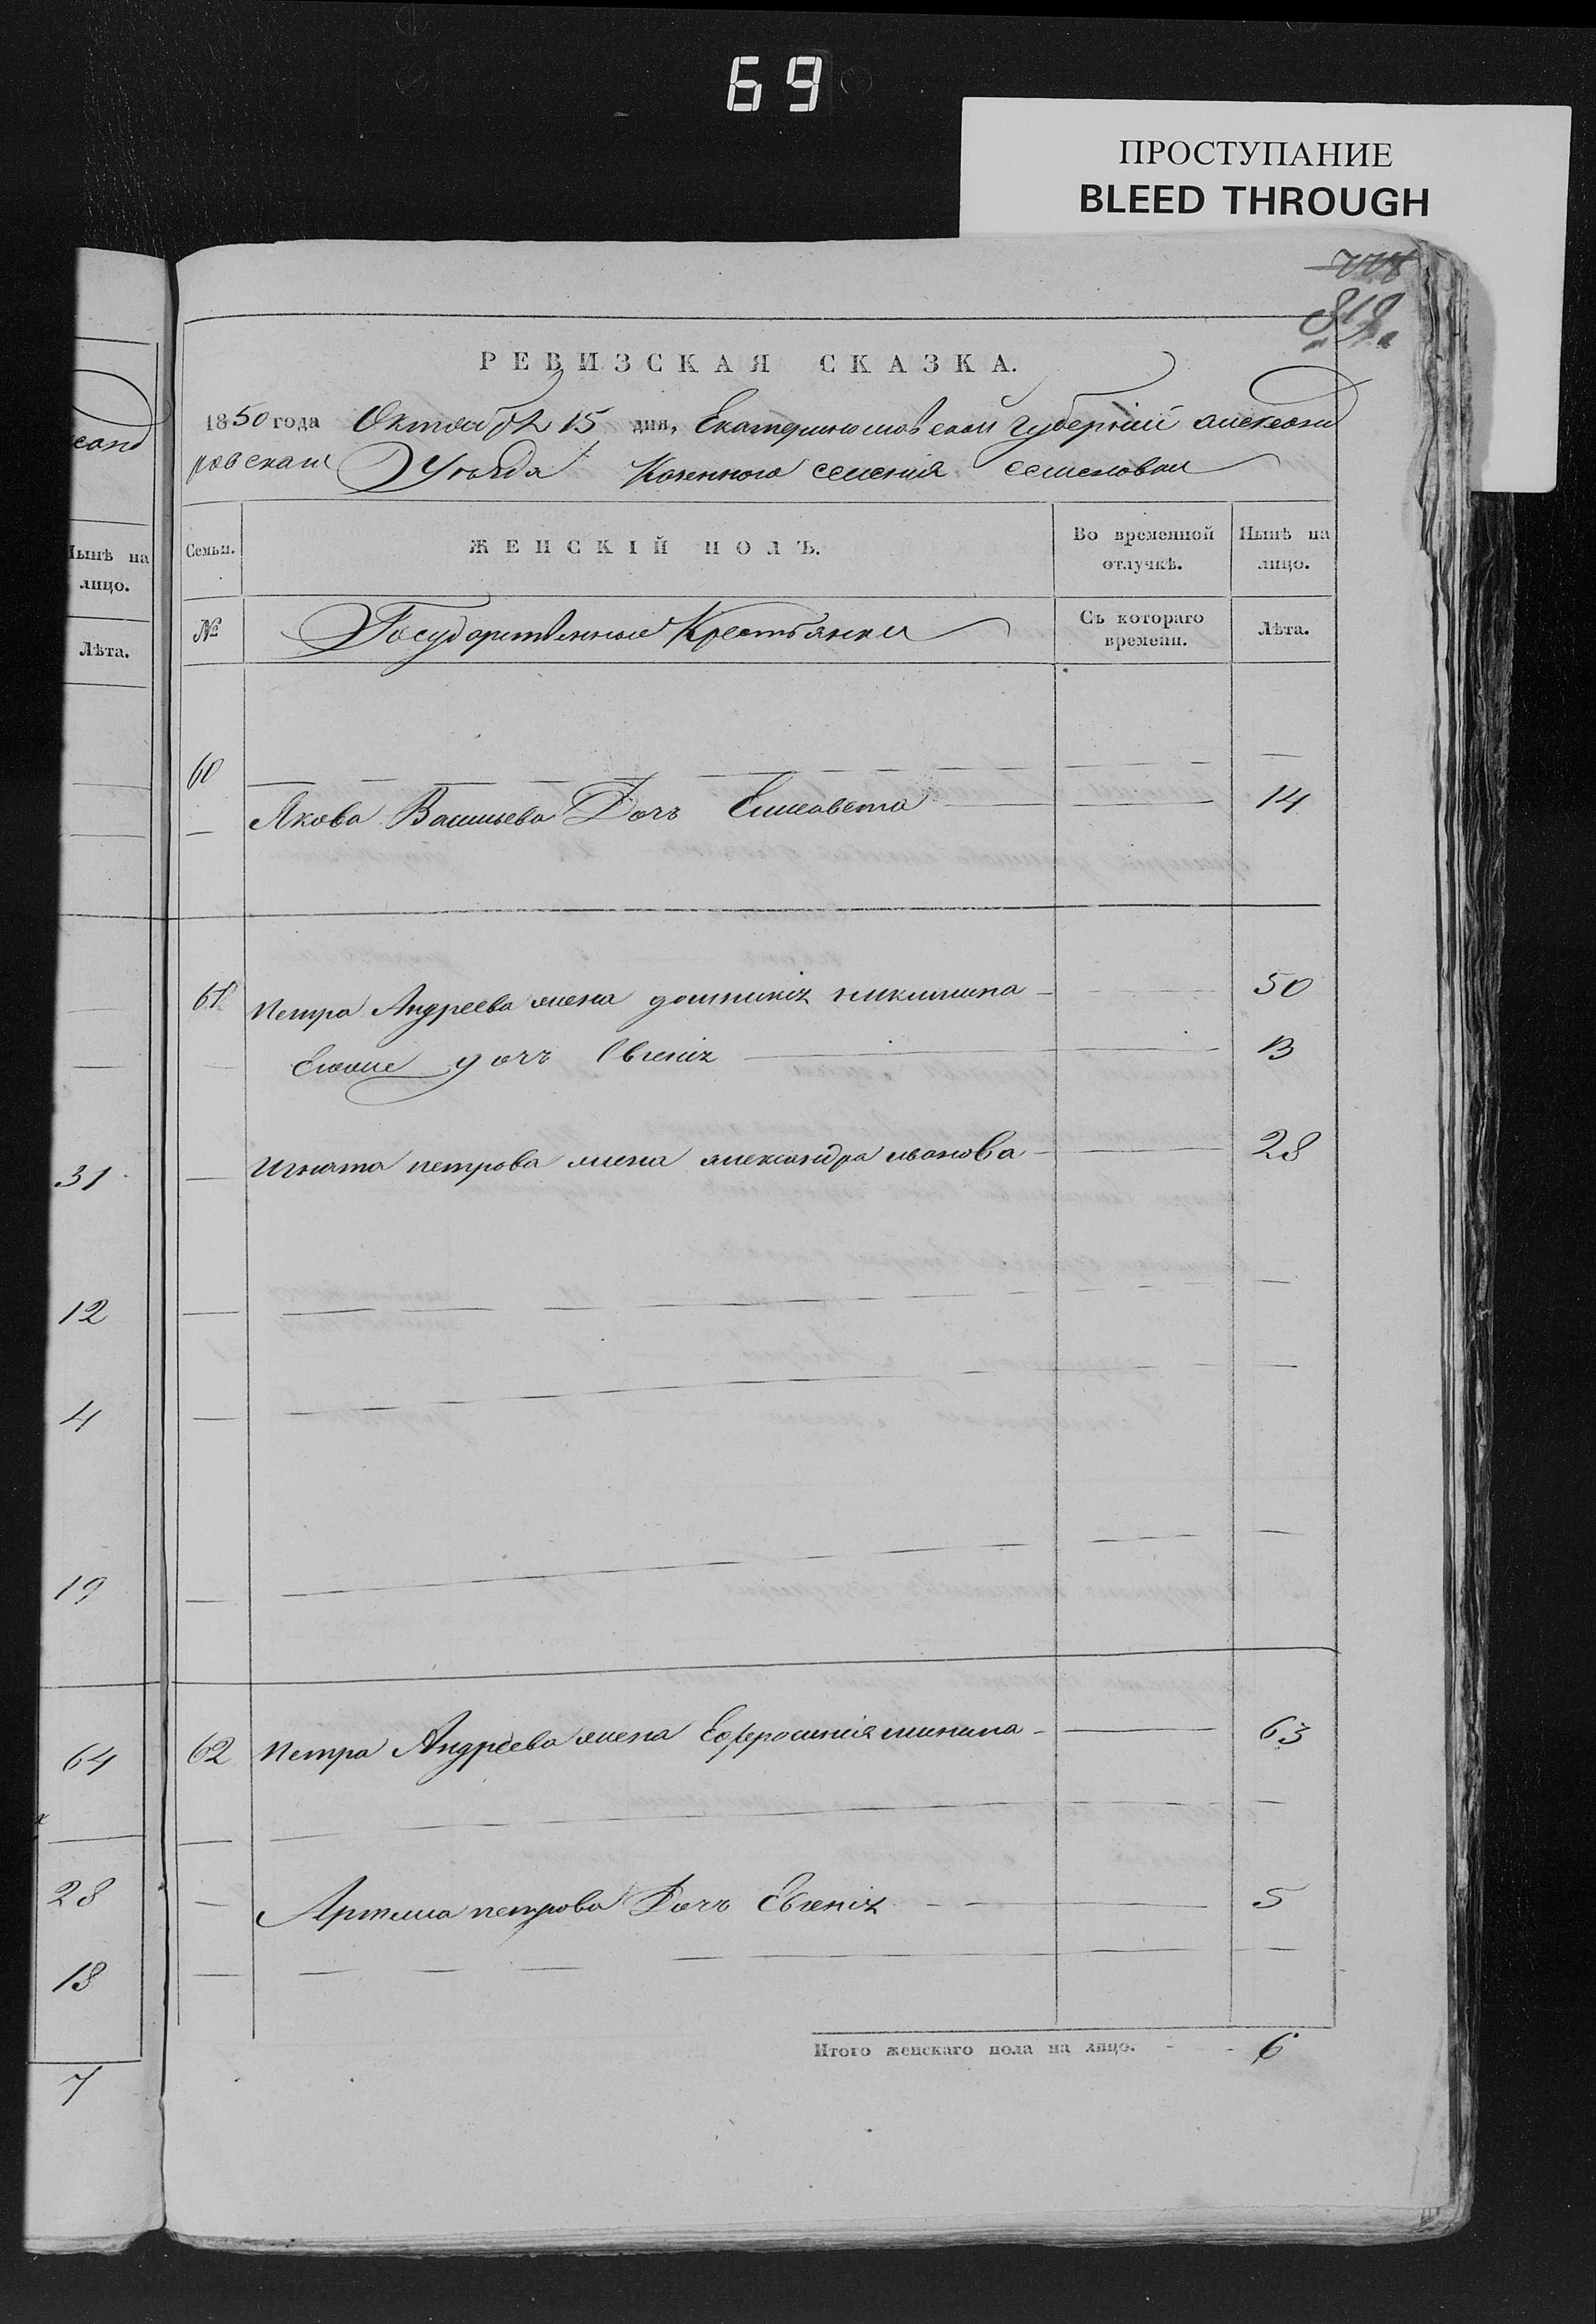 69
ПРОСТУПАНИЕ
BLEED THROUGH
819
РЕВИЗСКАЯ СКАЗКА.
1850 года Октября 15 дня, Екатеринославской Губернии Александ
ровскаго Уѣзда Казеннаго селения
Семьи. ЖЕНСКІЙ ПОЛЪ. Во временной отлучкѣ. Нынѣ на лицо.
№ Государственные Крестьянки Съ котораго времени. Лѣта.
60
Якова Васильева Дочь Елисавета 14
61 Петра Андреева жена домникія никитина 50
Егоже дочь Евгенія 13
Игната петрова жена александра иванова 28
62 Петра Андреева жена Ефросинія минина 63
Артема петрова Дочь Евгенія 5
Итого женскаго пола на лицо. 6
Нынѣ на
лицо.
Лѣта.
31
12
4
19
64
28
18
7